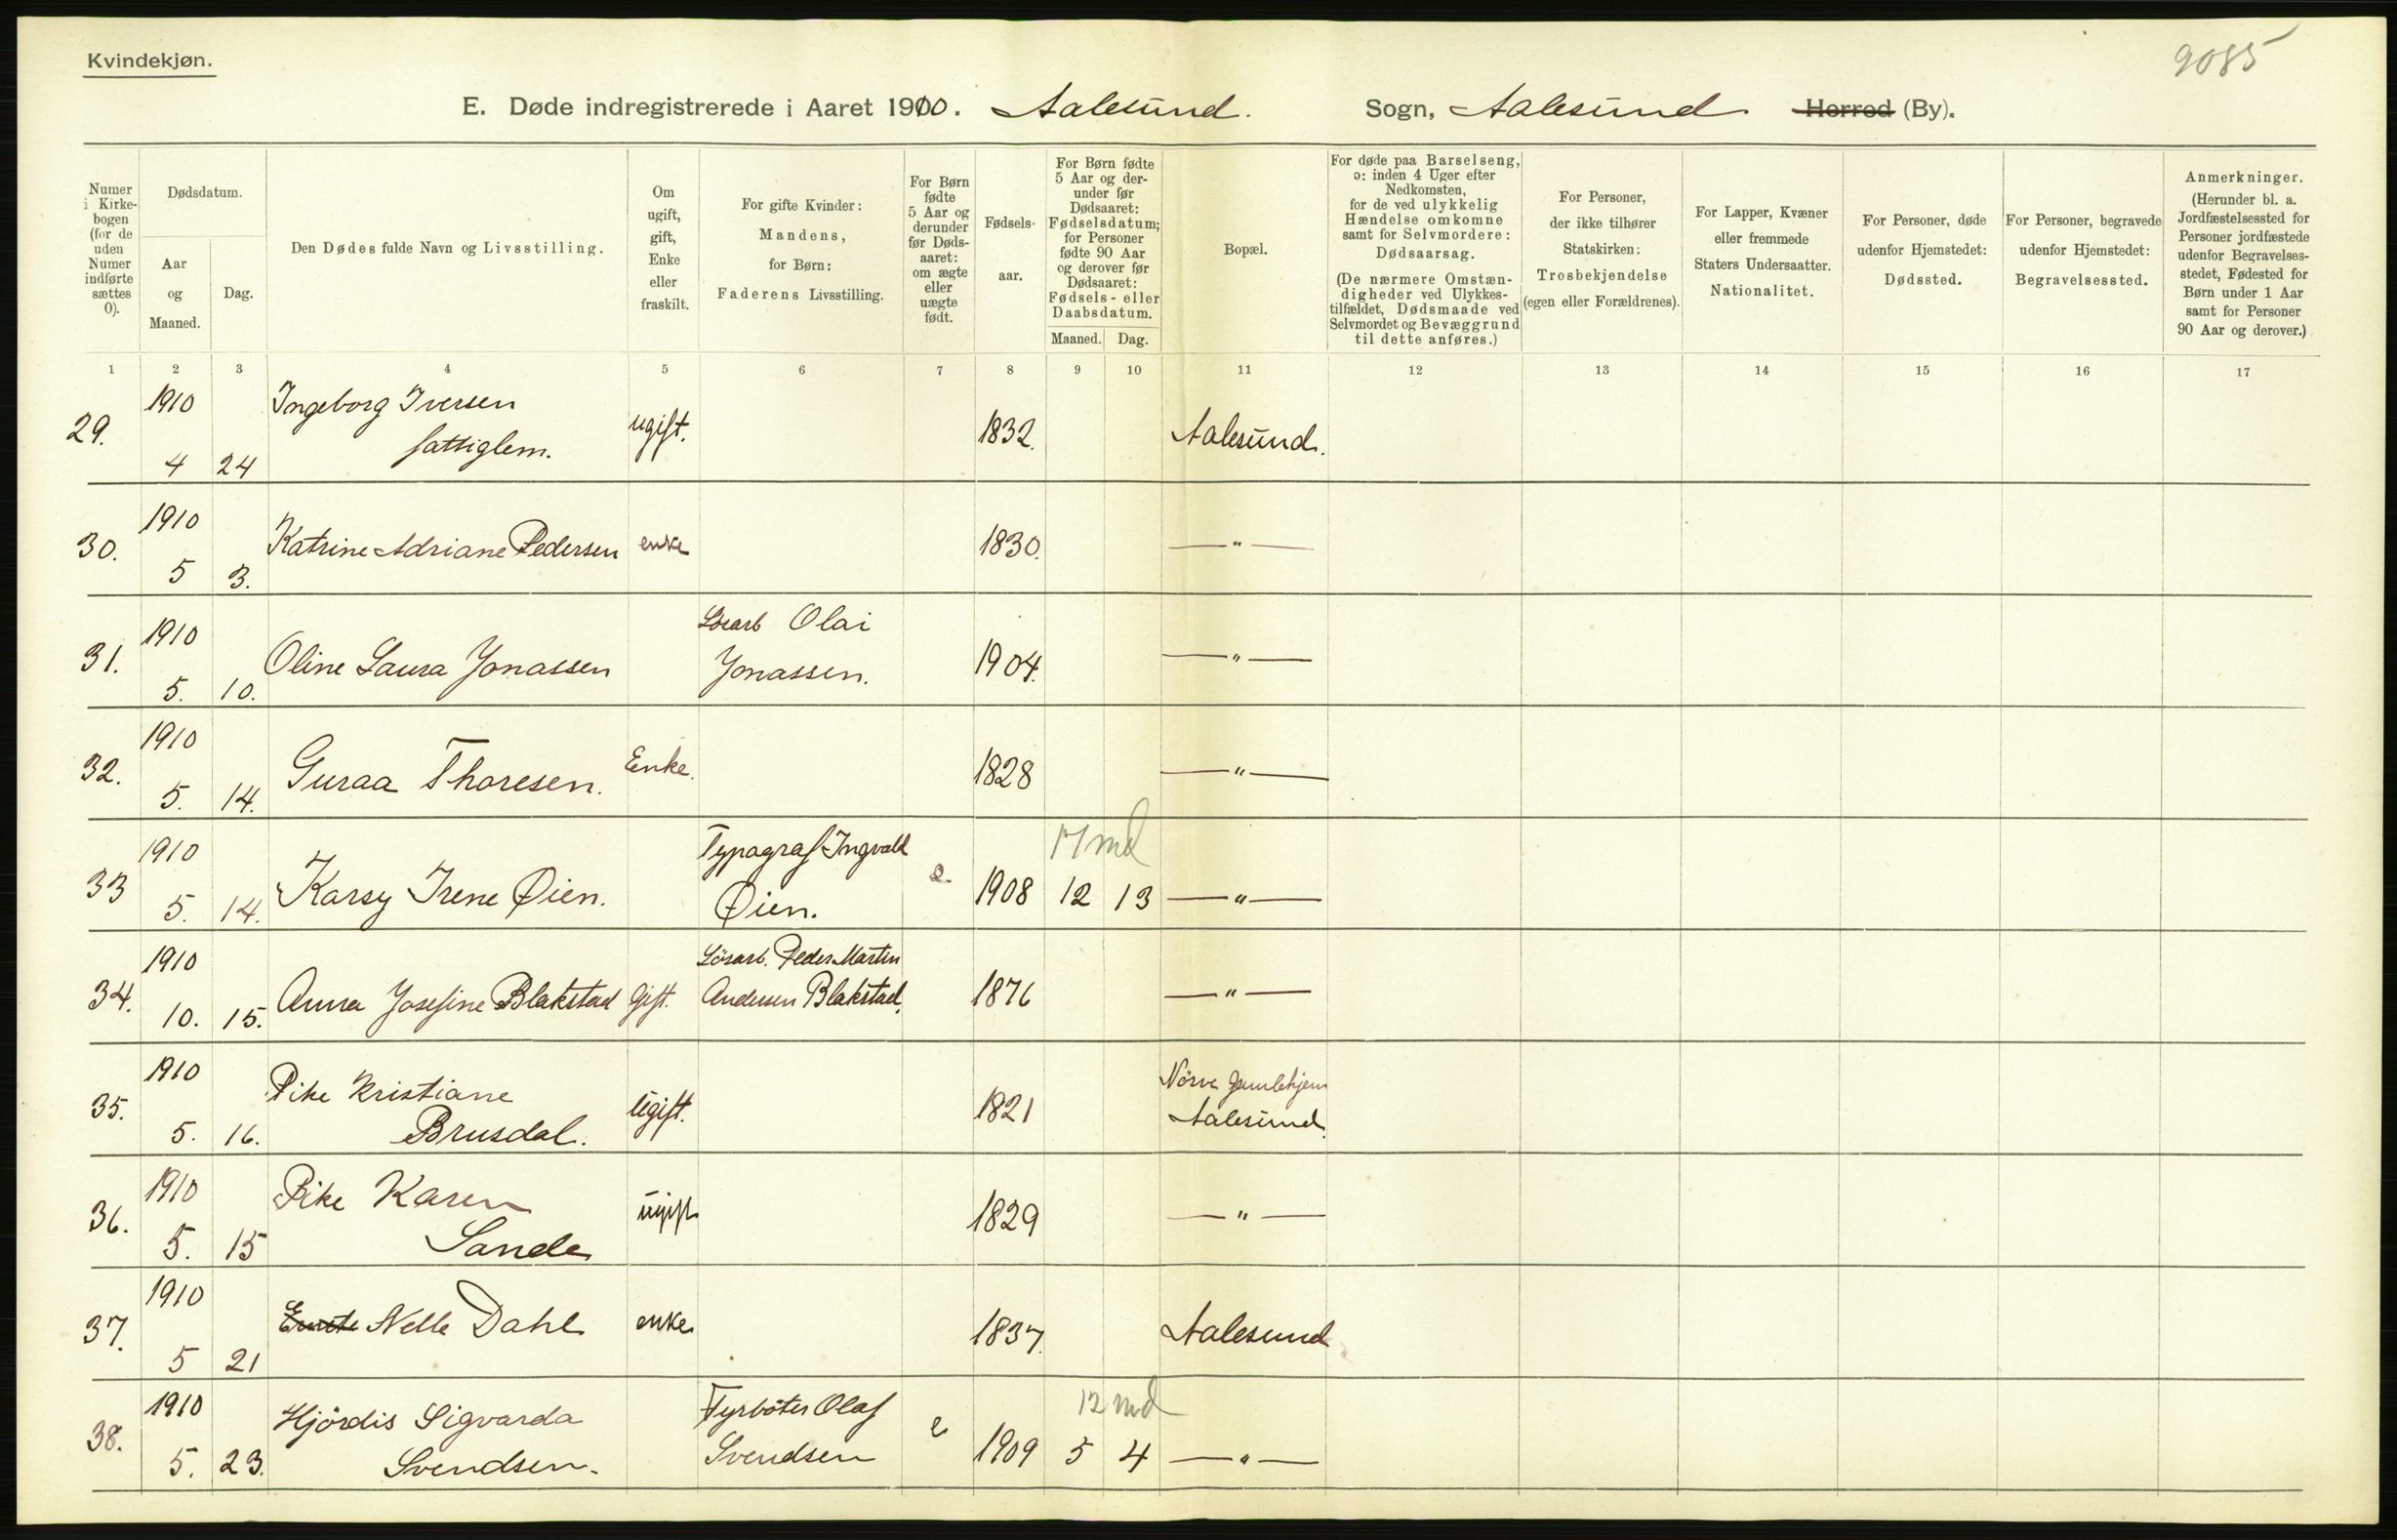 Kvindekjøn.
9085
E. Døde indregistrerede i Aaret 1910. Aalesund. Sogn, Aalesund Herred (By).
Numer i Kirke-bogen (for de uden Numer indførte sættes 0).
Dødsdatum.
Aar og Maaned.
Dag.
Den Dødes fulde Navn og Livsstilling.
Om ugift, gift, Enke eller fraskilt.
For gifte Kvinder: Mandens, for Børn: Faderens Livsstilling.
For Børn fødte 5 Aar og derunder før Døds-aaret: om ægte eller uægte født.
Fødsels-aar.
For Børn fødte 5 Aar og der-under før Dødsaaret: Fødselsdatum; for Personer fødte 90 Aar og derover før Dødsaaret: Fødsels- eller Daabsdatum.
Maaned. Dag.
Bopæl.
For døde paa Barselseng, ɔ: inden 4 Uger efter Nedkomsten, for de ved ulykkelig Hændelse omkomne samt for Selvmordere: Dødsaarsag. (De nærmere Omstæn-digheder ved Ulykkes-tilfældet, Dødsmaade ved Selvmordet og Bevæggrund til dette anføres.)
For Personer, der ikke tilhører Statskirken: Trosbekjendelse (egen eller Forældrenes).
For Lapper, Kvæner eller fremmede Staters Undersaatter. Nationalitet.
For Personer, døde udenfor Hjemstedet: Dødssted.
For Personer, begravede udenfor Hjemstedet: Begravelsessted.
Anmerkninger. (Herunder bl. a. Jordfæstelsessted for Personer jordfæstede udenfor Begravelses-stedet, Fødested for Børn under 1 Aar samt for Personer 90 Aar og derover.)
1 2 3 4 5 6 7 8 9 10 11 12 13 14 15 16 17
29. 1910 4 24 Ingeborg Iversen fattiglem. ugift. 1832. Aalesund.
30. 1910 5 3. Katrine Adriane Pedersen enke 1830. —"—
31. 1910 5. 10. Oline Laura Jonassen Løsarb Olai Jonassen. 1904. —"—
32. 1910 5. 14. Guraa Thoresen. Enke. 1828 —"—
33 1910 5. 14. Karsy Irene Øien. Typograf Ingvald Øien. e. 1908 17 md 12 13 —"—
34. 1910 10. 15. Anna Josefine Blakstad Gift. Lösarb. Peder Martin Andersen Blakstad. 1876 —"—
35. 1910 5. 16. Pike Kristiane Brusdal. Ugift. 1821 Nörve Gamlehjem Aalesund.
36. 1910 5. 15 Pike Karen Sande ugift 1829 —"—
37. 1910 5 21 Nelle Dahl enke 1837. Aalesund
38. 1910 5. 23. Hjördis Sigvarda Svendsen. Fyrböter Olaf Svendsen e 1909 12 md 5 4 —"—